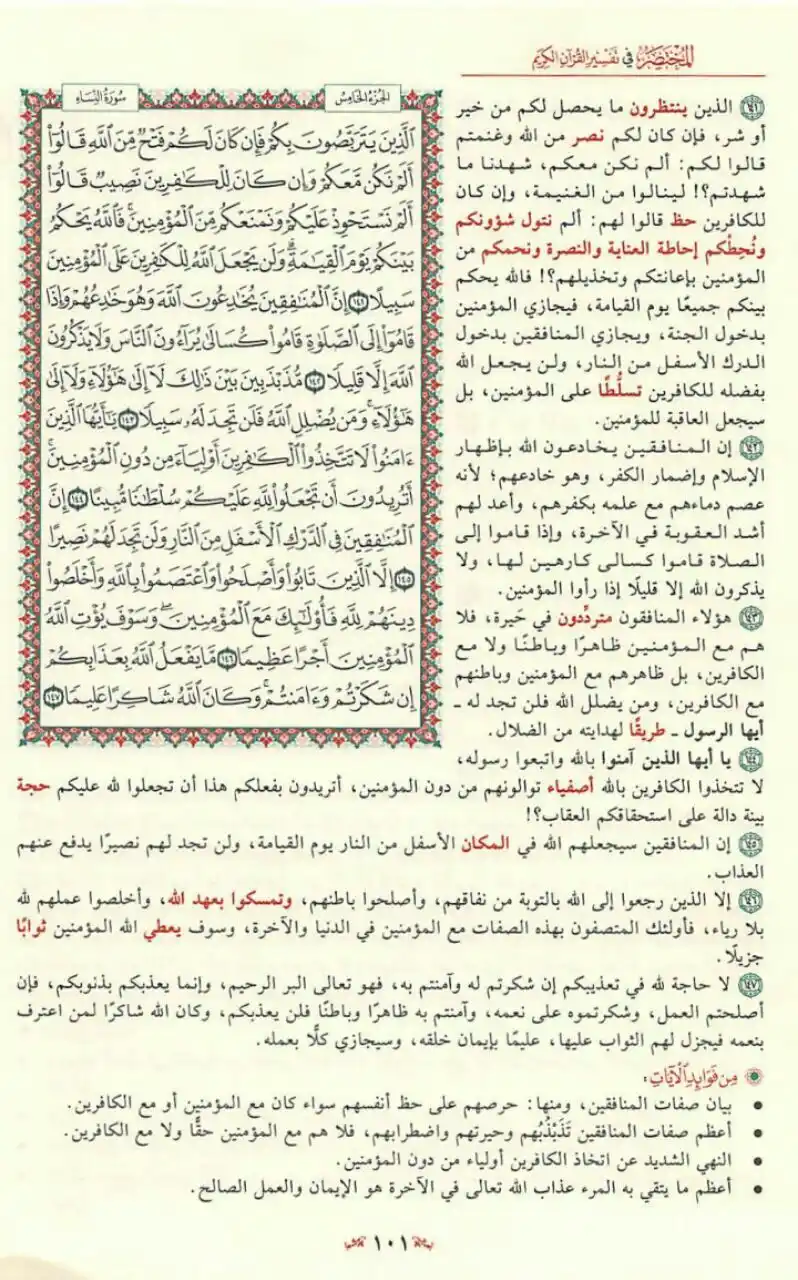 المختصر في تفسير القرآن الكريم
الجزء الخامس
سورة النساء
الَّذِينَ يَتَرَبَّصُونَ بِكُمْ فَإِن كَانَ لَكُمْ فَتْحٌ مِّنَ اللَّهِ قَالُوٓا۟
أَلَمْ نَكُن مَّعَكُمْ وَإِن كَانَ لِلْكَٰفِرِينَ نَصِيبٌ قَالُوٓا۟
أَلَمْ نَسْتَحْوِذْ عَلَيْكُمْ وَنَمْنَعْكُم مِّنَ الْمُؤْمِنِينَ ۚ فَاللَّهُ يَحْكُمُ
بَيْنَكُمْ يَوْمَ الْقِيَٰمَةِ ۗ وَلَن يَجْعَلَ اللَّهُ لِلْكَٰفِرِينَ عَلَى الْمُؤْمِنِينَ
سَبِيلًا ١٤١ إِنَّ الْمُنَٰفِقِينَ يُخَٰدِعُونَ اللَّهَ وَهُوَ خَٰدِعُهُمْ وَإِذَا
قَامُوٓا۟ إِلَى الصَّلَوٰةِ قَامُوا۟ كُسَالَىٰ يُرَآءُونَ النَّاسَ وَلَا يَذْكُرُونَ
اللَّهَ إِلَّا قَلِيلًا ١٤٢ مُّذَبْذَبِينَ بَيْنَ ذَٰلِكَ لَآ إِلَىٰ هَٰٓؤُلَآءِ وَلَآ إِلَىٰ
هَٰٓؤُلَآءِ ۚ وَمَن يُضْلِلِ اللَّهُ فَلَن تَجِدَ لَهُۥ سَبِيلًا ١٤٣ يَٰٓأَيُّهَا الَّذِينَ
ءَامَنُوا۟ لَا تَتَّخِذُوا۟ الْكَٰفِرِينَ أَوْلِيَآءَ مِن دُونِ الْمُؤْمِنِينَ ۚ
أَتُرِيدُونَ أَن تَجْعَلُوا۟ لِلَّهِ عَلَيْكُمْ سُلْطَٰنًا مُّبِينًا ١٤٤ إِنَّ
الْمُنَٰفِقِينَ فِي الدَّرْكِ الْأَسْفَلِ مِنَ النَّارِ وَلَن تَجِدَ لَهُمْ نَصِيرًا
١٤٥ إِلَّا الَّذِينَ تَابُوا۟ وَأَصْلَحُوا۟ وَاعْتَصَمُوا۟ بِاللَّهِ وَأَخْلَصُوا۟
دِينَهُمْ لِلَّهِ فَأُو۟لَٰٓئِكَ مَعَ الْمُؤْمِنِينَ ۖ وَسَوْفَ يُؤْتِ اللَّهُ
الْمُؤْمِنِينَ أَجْرًا عَظِيمًا ١٤٦ مَّا يَفْعَلُ اللَّهُ بِعَذَابِكُمْ
إِن شَكَرْتُمْ وَءَامَنتُمْ ۚ وَكَانَ اللَّهُ شَاكِرًا عَلِيمًا ١٤٧
١٤١ الذين ينتظرون ما يحصل لكم من خير
أو شر، فإن كان لكم نصر من الله وغنمتم
قالوا لكم: ألم نكن معكم، شهدنا ما
شهدتم؟! لينالوا من الغنيمة، وإن كان
للكافرين حظ قالوا لهم: ألم نتول شؤونكم
ونُحِطْكم إحاطة العناية والنصرة ونحمكم من
المؤمنين بإعانتكم وتخذيلهم؟! فالله يحكم
بينكم جميعًا يوم القيامة، فيجازي المؤمنين
بدخول الجنة، ويجازي المنافقين بدخول
الدرك الأسفل من النار، ولن يجعل الله
بفضله للكافرين تسلُّطًا على المؤمنين، بل
سيجعل العاقبة للمؤمنين.
١٤٢ إن المنافقين يخادعون الله بإظهار
الإسلام وإضمار الكفر، وهو خادعهم؛ لأنه
عصم دماءهم مع علمه بكفرهم، وأعد لهم
أشد العقوبة في الآخرة، وإذا قاموا إلى
الصلاة قاموا كسالى كارهين لها، ولا
يذكرون الله إلا قليلًا إذا رأوا المؤمنين.
١٤٣ هؤلاء المنافقون متردِّدون في حَيرة، فلا
هم مع المؤمنين ظاهرًا وباطنًا ولا مع
الكافرين، بل ظاهرهم مع المؤمنين وباطنهم
مع الكافرين، ومن يضلل الله فلن تجد له ـ
أيها الرسول ـ طريقًا لهدايته من الضلال.
١٤٤ يا أيها الذين آمنوا بالله واتبعوا رسوله،
لا تتخذوا الكافرين بالله أصفياء توالونهم من دون المؤمنين، أتريدون بفعلكم هذا أن تجعلوا لله عليكم حجة
بينة دالة على استحقاقكم العقاب؟!
١٤٥ إن المنافقين سيجعلهم الله في المكان الأسفل من النار يوم القيامة، ولن تجد لهم نصيرًا يدفع عنهم
العذاب.
١٤٦ إلا الذين رجعوا إلى الله بالتوبة من نفاقهم، وأصلحوا باطنهم، وتمسكوا بعهد الله، وأخلصوا عملهم لله
بلا رياء، فأولئك المتصفون بهذه الصفات مع المؤمنين في الدنيا والآخرة، وسوف يعطي الله المؤمنين ثوابًا
جزيلًا.
١٤٧ لا حاجة لله في تعذيبكم إن شكرتم له وآمنتم به، فهو تعالى البر الرحيم، وإنما يعذبكم بذنوبكم، فإن
أصلحتم العمل، وشكرتموه على نعمه، وآمنتم به ظاهرًا وباطنًا فلن يعذبكم، وكان الله شاكرًا لمن اعترف
بنعمه فيجزل لهم الثواب عليها، عليمًا بإيمان خلقه، وسيجازي كلًّا بعمله.
من فوائد الآيات:
• بيان صفات المنافقين، ومنها: حرصهم على حظ أنفسهم سواء كان مع المؤمنين أو مع الكافرين.
• أعظم صفات المنافقين تَذَبْذُبُهم وحيرتهم واضطرابهم، فلا هم مع المؤمنين حقًّا ولا مع الكافرين.
• النهي الشديد عن اتخاذ الكافرين أولياء من دون المؤمنين.
• أعظم ما يتقي به المرء عذاب الله تعالى في الآخرة هو الإيمان والعمل الصالح.
١٠١